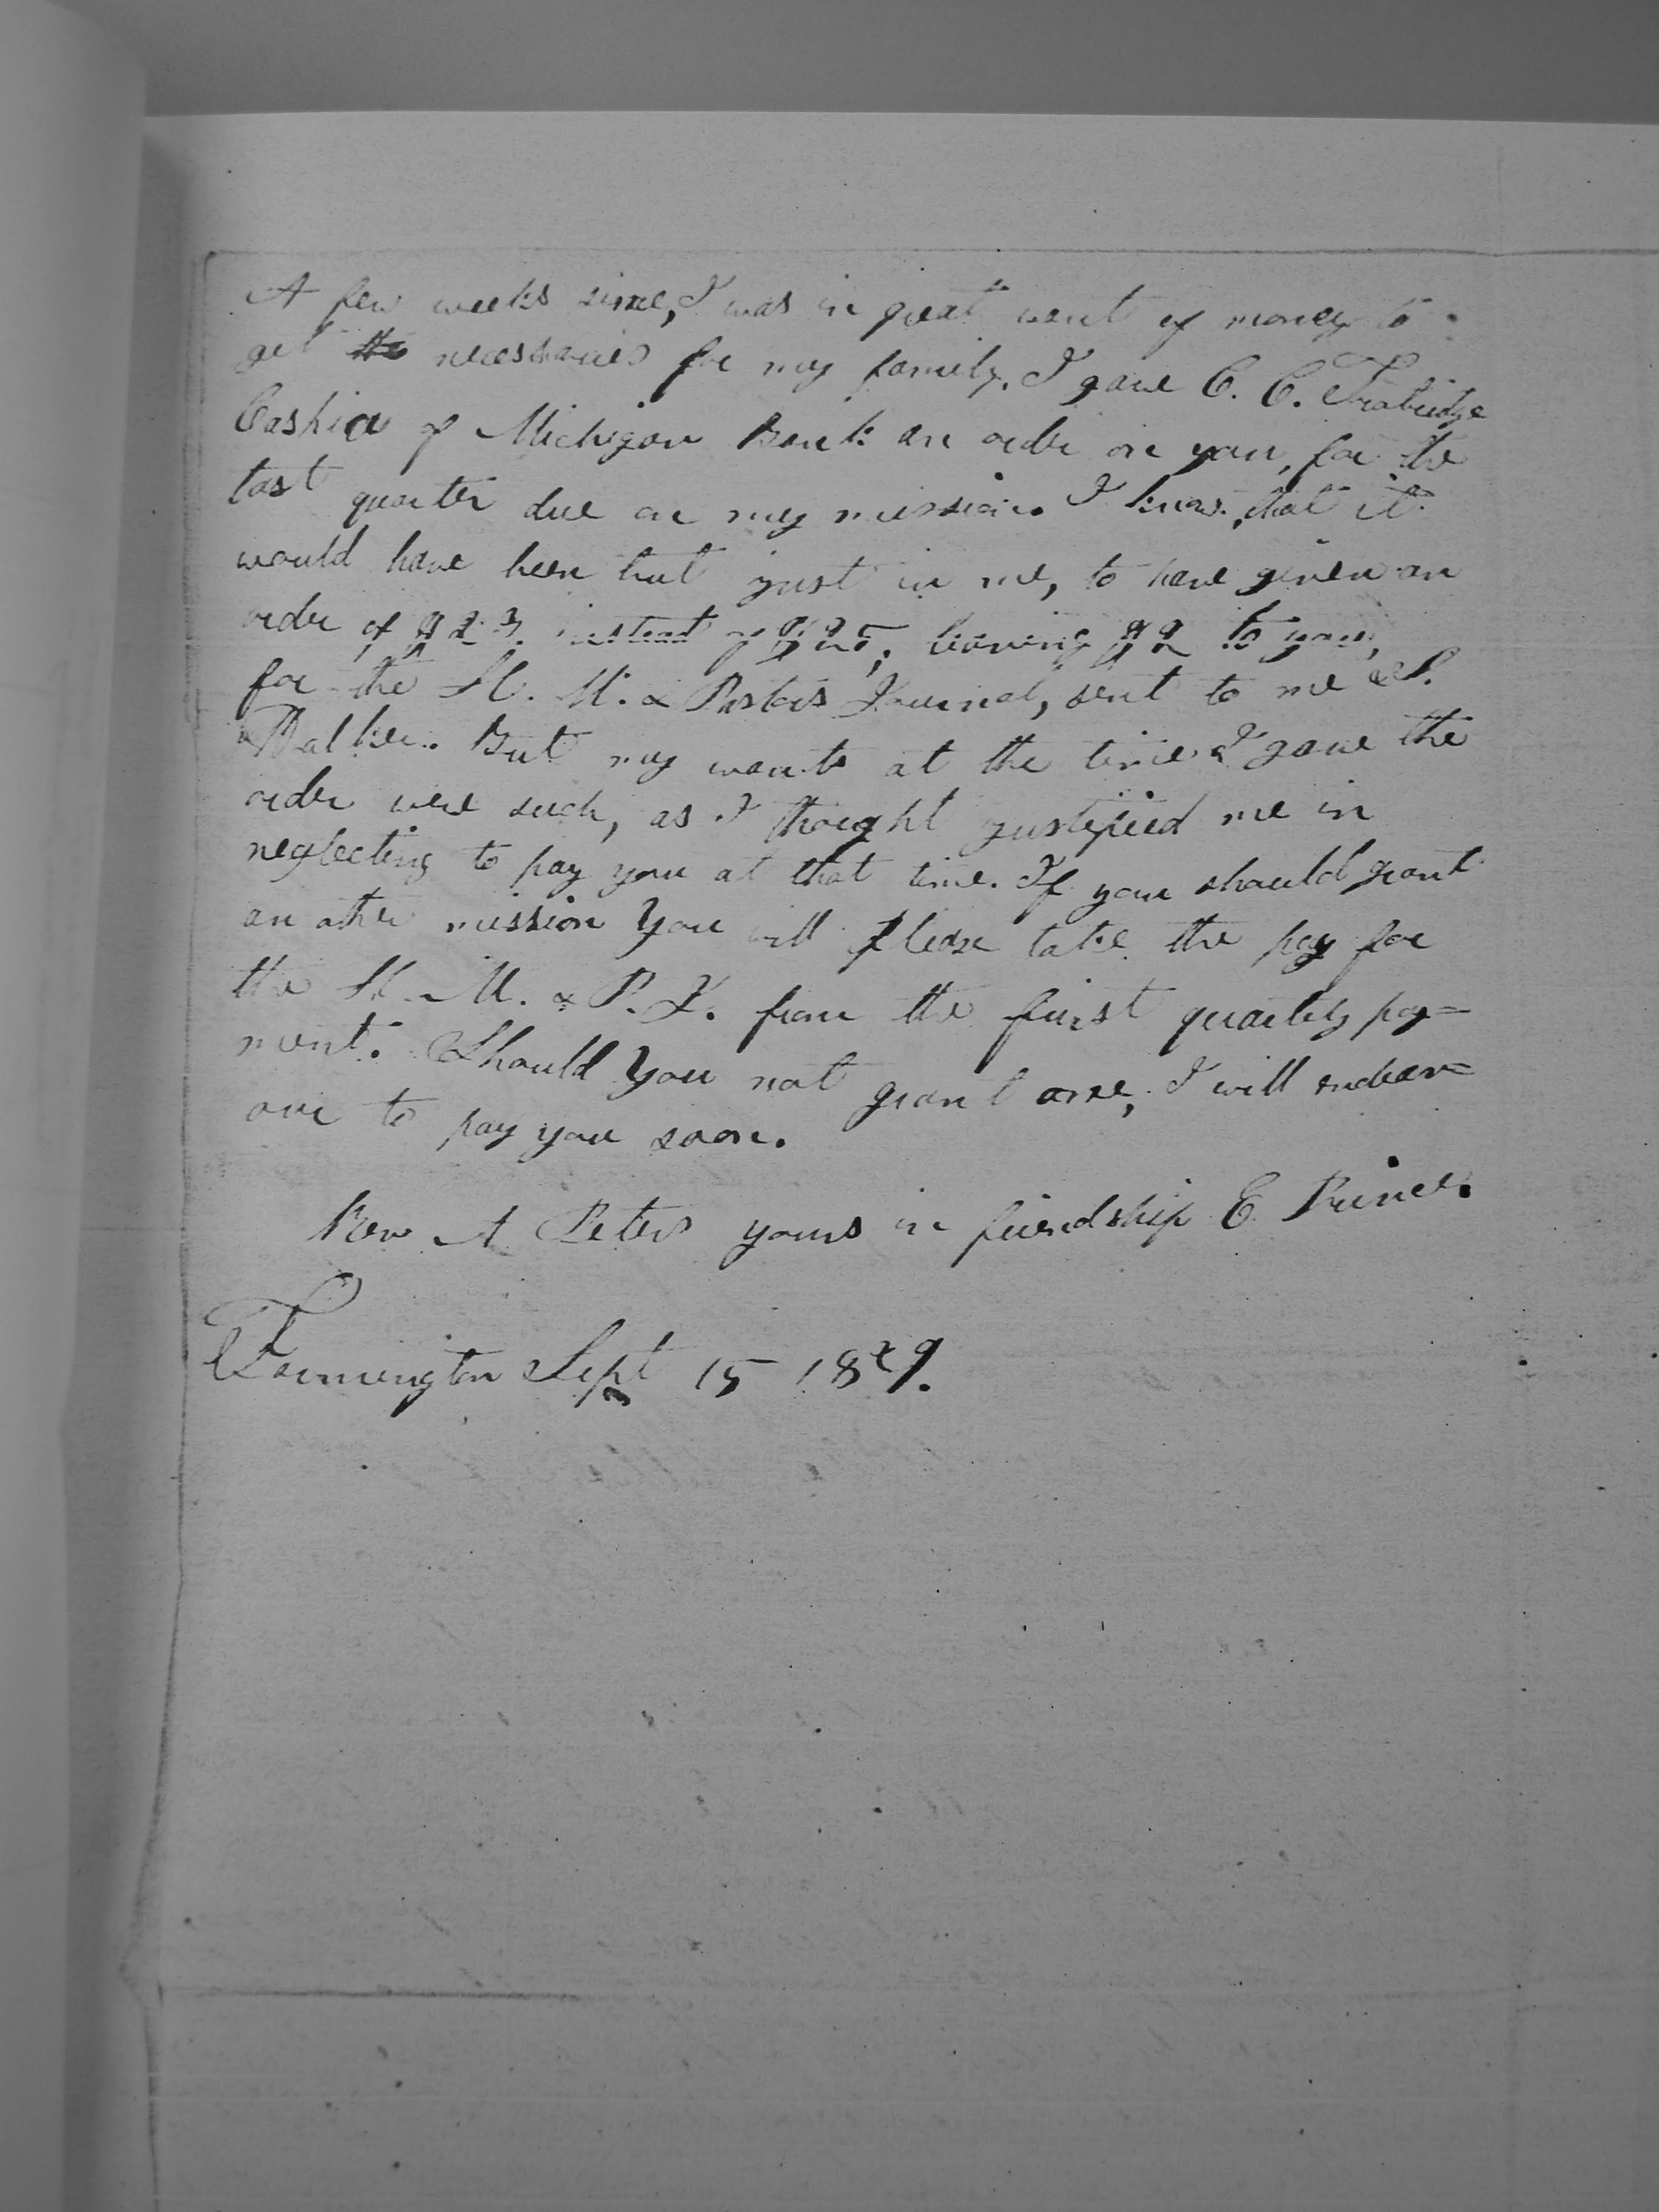 A few weeks since, I was in great want of money to
get the necessaries for my family. I gave C. C. Trabridge
Cashier of Michigan Bank an order on you, for the
last quarter due on my mission. I know, that it
would have been but just in me, to have given an
order of $23. instead of $25, leaving $2 to you,
for the H. M. & Pastors Journal, sent to me & S.
Walker. But my wants at the time I gave the
order were such, as I thought justified me in
neglecting to pay you at that time. If you should grant
an other mission you will please take the pay for
the H. M. & P. J. from the first quarterly pay=
ment. Should you not grant one, I will endeav=
our to pay you soon.
Rev A Peters yours in friendship E Prince.
Farmington Sept 15 1829.